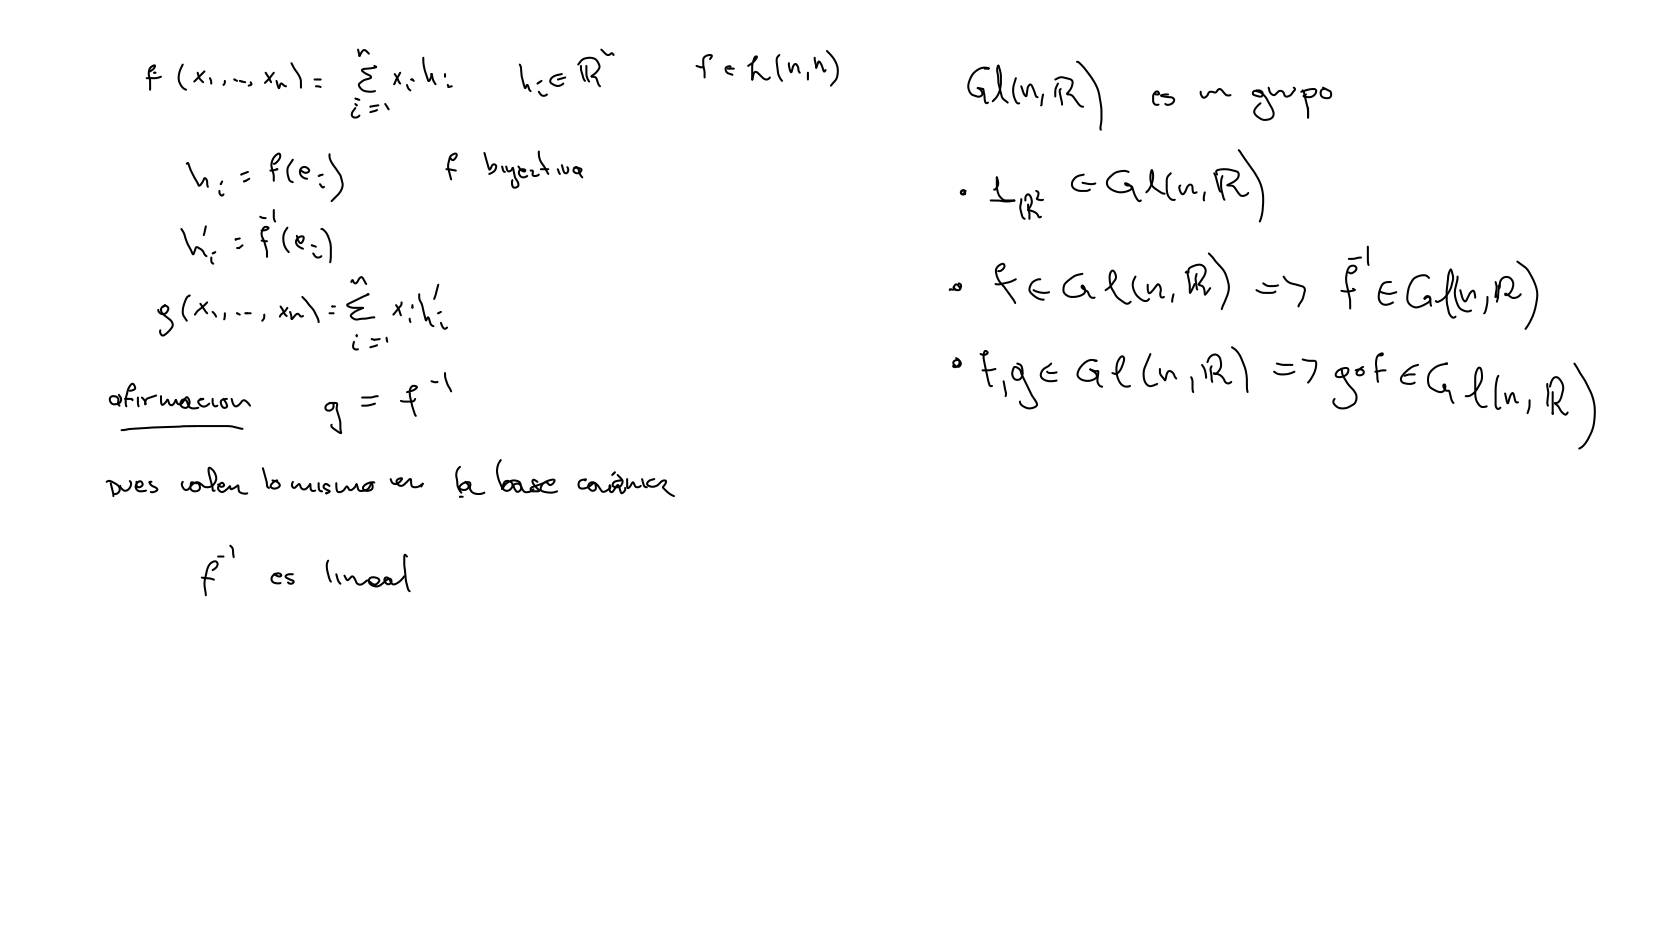 f(x₁,...,xₙ) = ∑ᵢ₌₁ⁿ xᵢhᵢ hᵢ ∈ ℝⁿ f ∈ L(n,n)
hᵢ = f(eᵢ) f biyectiva
h'ᵢ = f⁻¹(eᵢ)
g(x₁,...,xₙ) = ∑ᵢ₌₁ⁿ xᵢh'ᵢ
afirmacion g = f⁻¹
pues valen lo mismo en la base canónica
f⁻¹ es lineal
Gl(n,ℝ) es un grupo
• 1_ℝ² ∈ Gl(n,ℝ)
• f ∈ Gl(n,ℝ) => f⁻¹ ∈ Gl(n,ℝ)
• f,g ∈ Gl(n,ℝ) => g∘f ∈ Gl(n,ℝ)